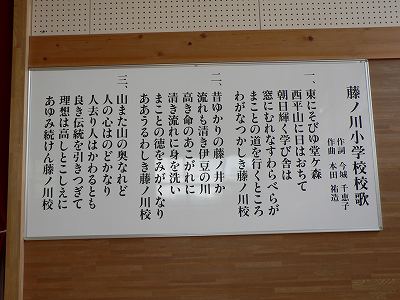 藤ノ川小学校校歌
作詞 今城 千恵子
作曲 本田 祐造
一、東にそびゆ堂ケ森
西平山に日はおちて
朝日輝く学び舎は
窓にむれなすわらべらが
まことの道を行くところ
わがなつかしき藤ノ川校
二、昔ゆかりの藤ノ井か
流れも清き伊豆の川
高き命のあこがれに
清き流れに身を洗い
まことの徳をみがくなり
ああうるわしき藤ノ川校
三、山また山の奥なれど
人の心はのどかなり
人去り人はかわるとも
良き伝統を引きつぎて
理想は高しとこしえに
あゆみ続けん藤ノ川校